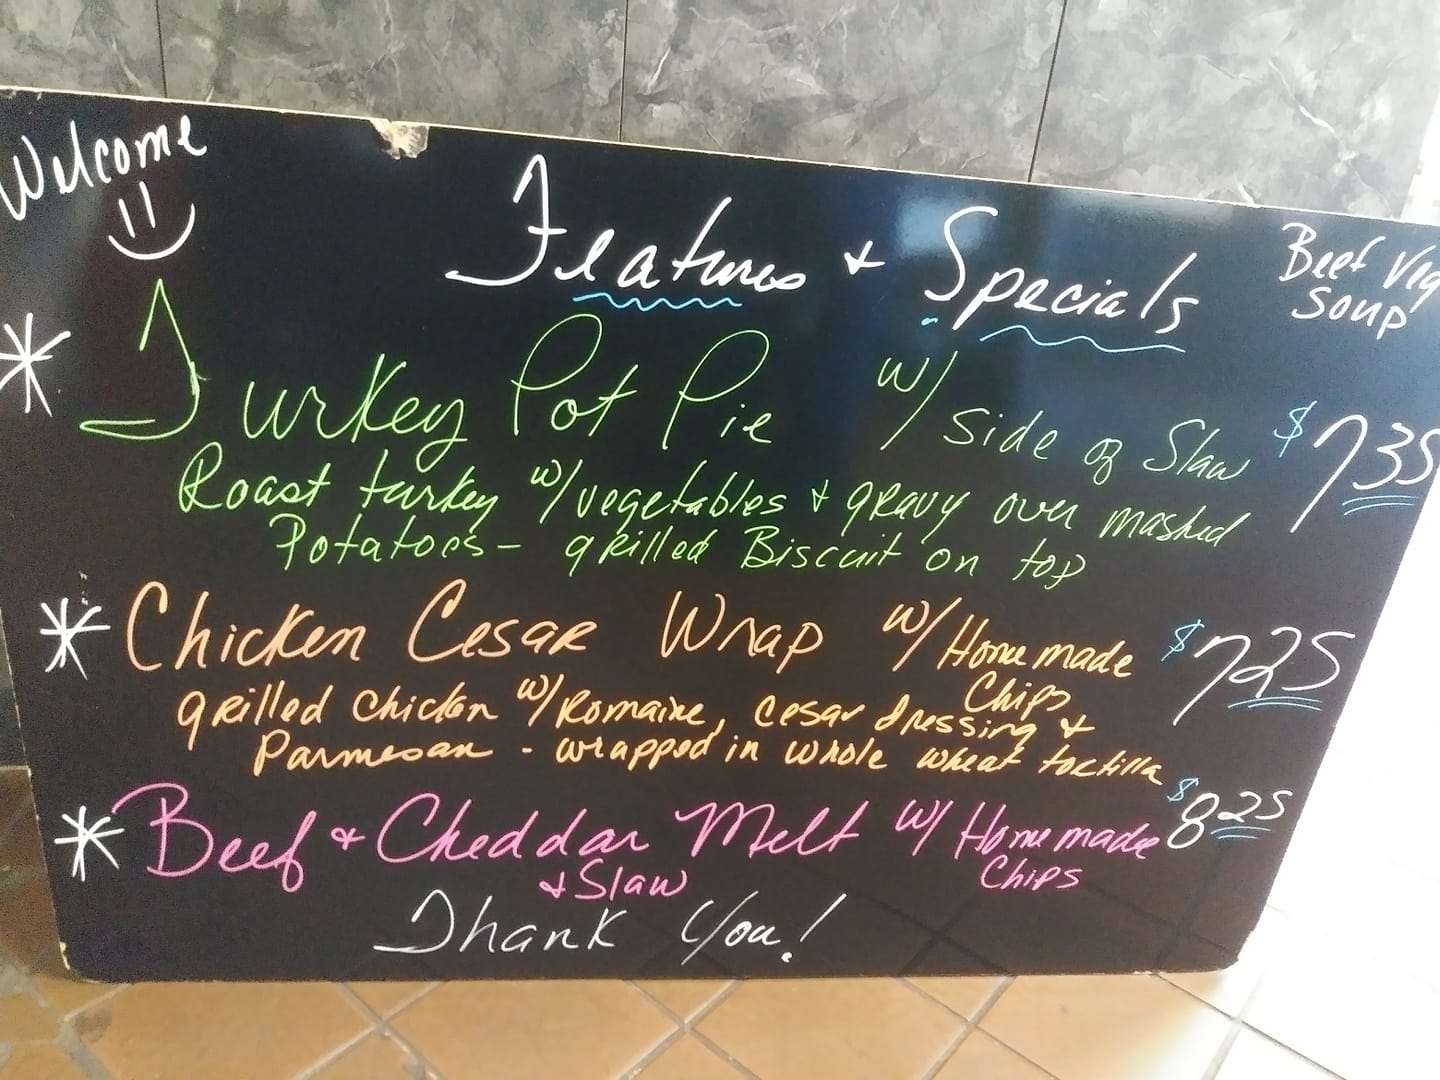 Welcome
Features + Specials
Beef Veg
Soup
* Turkey Pot Pie w/ side of Slaw $7.35
Roast turkey w/ vegetables + gravy over mashed
Potatoes - grilled Biscuit on top
* Chicken Cesar Wrap w/ Homemade $7.25
Chips
grilled chicken w/ Romaine, cesar dressing +
Parmesan - wrapped in whole wheat tortilla
* Beef + Cheddar Melt w/ Homemade $8.25
Chips
+ Slaw
Thank You!